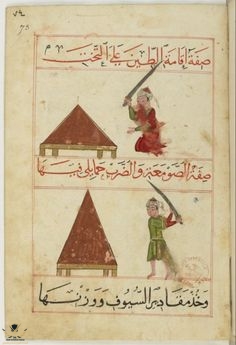 صفة اقامة الطين على التخت
صفة الصومعة والضرب حمايلي فيها
وخذ مقادير السيوف ووزنها